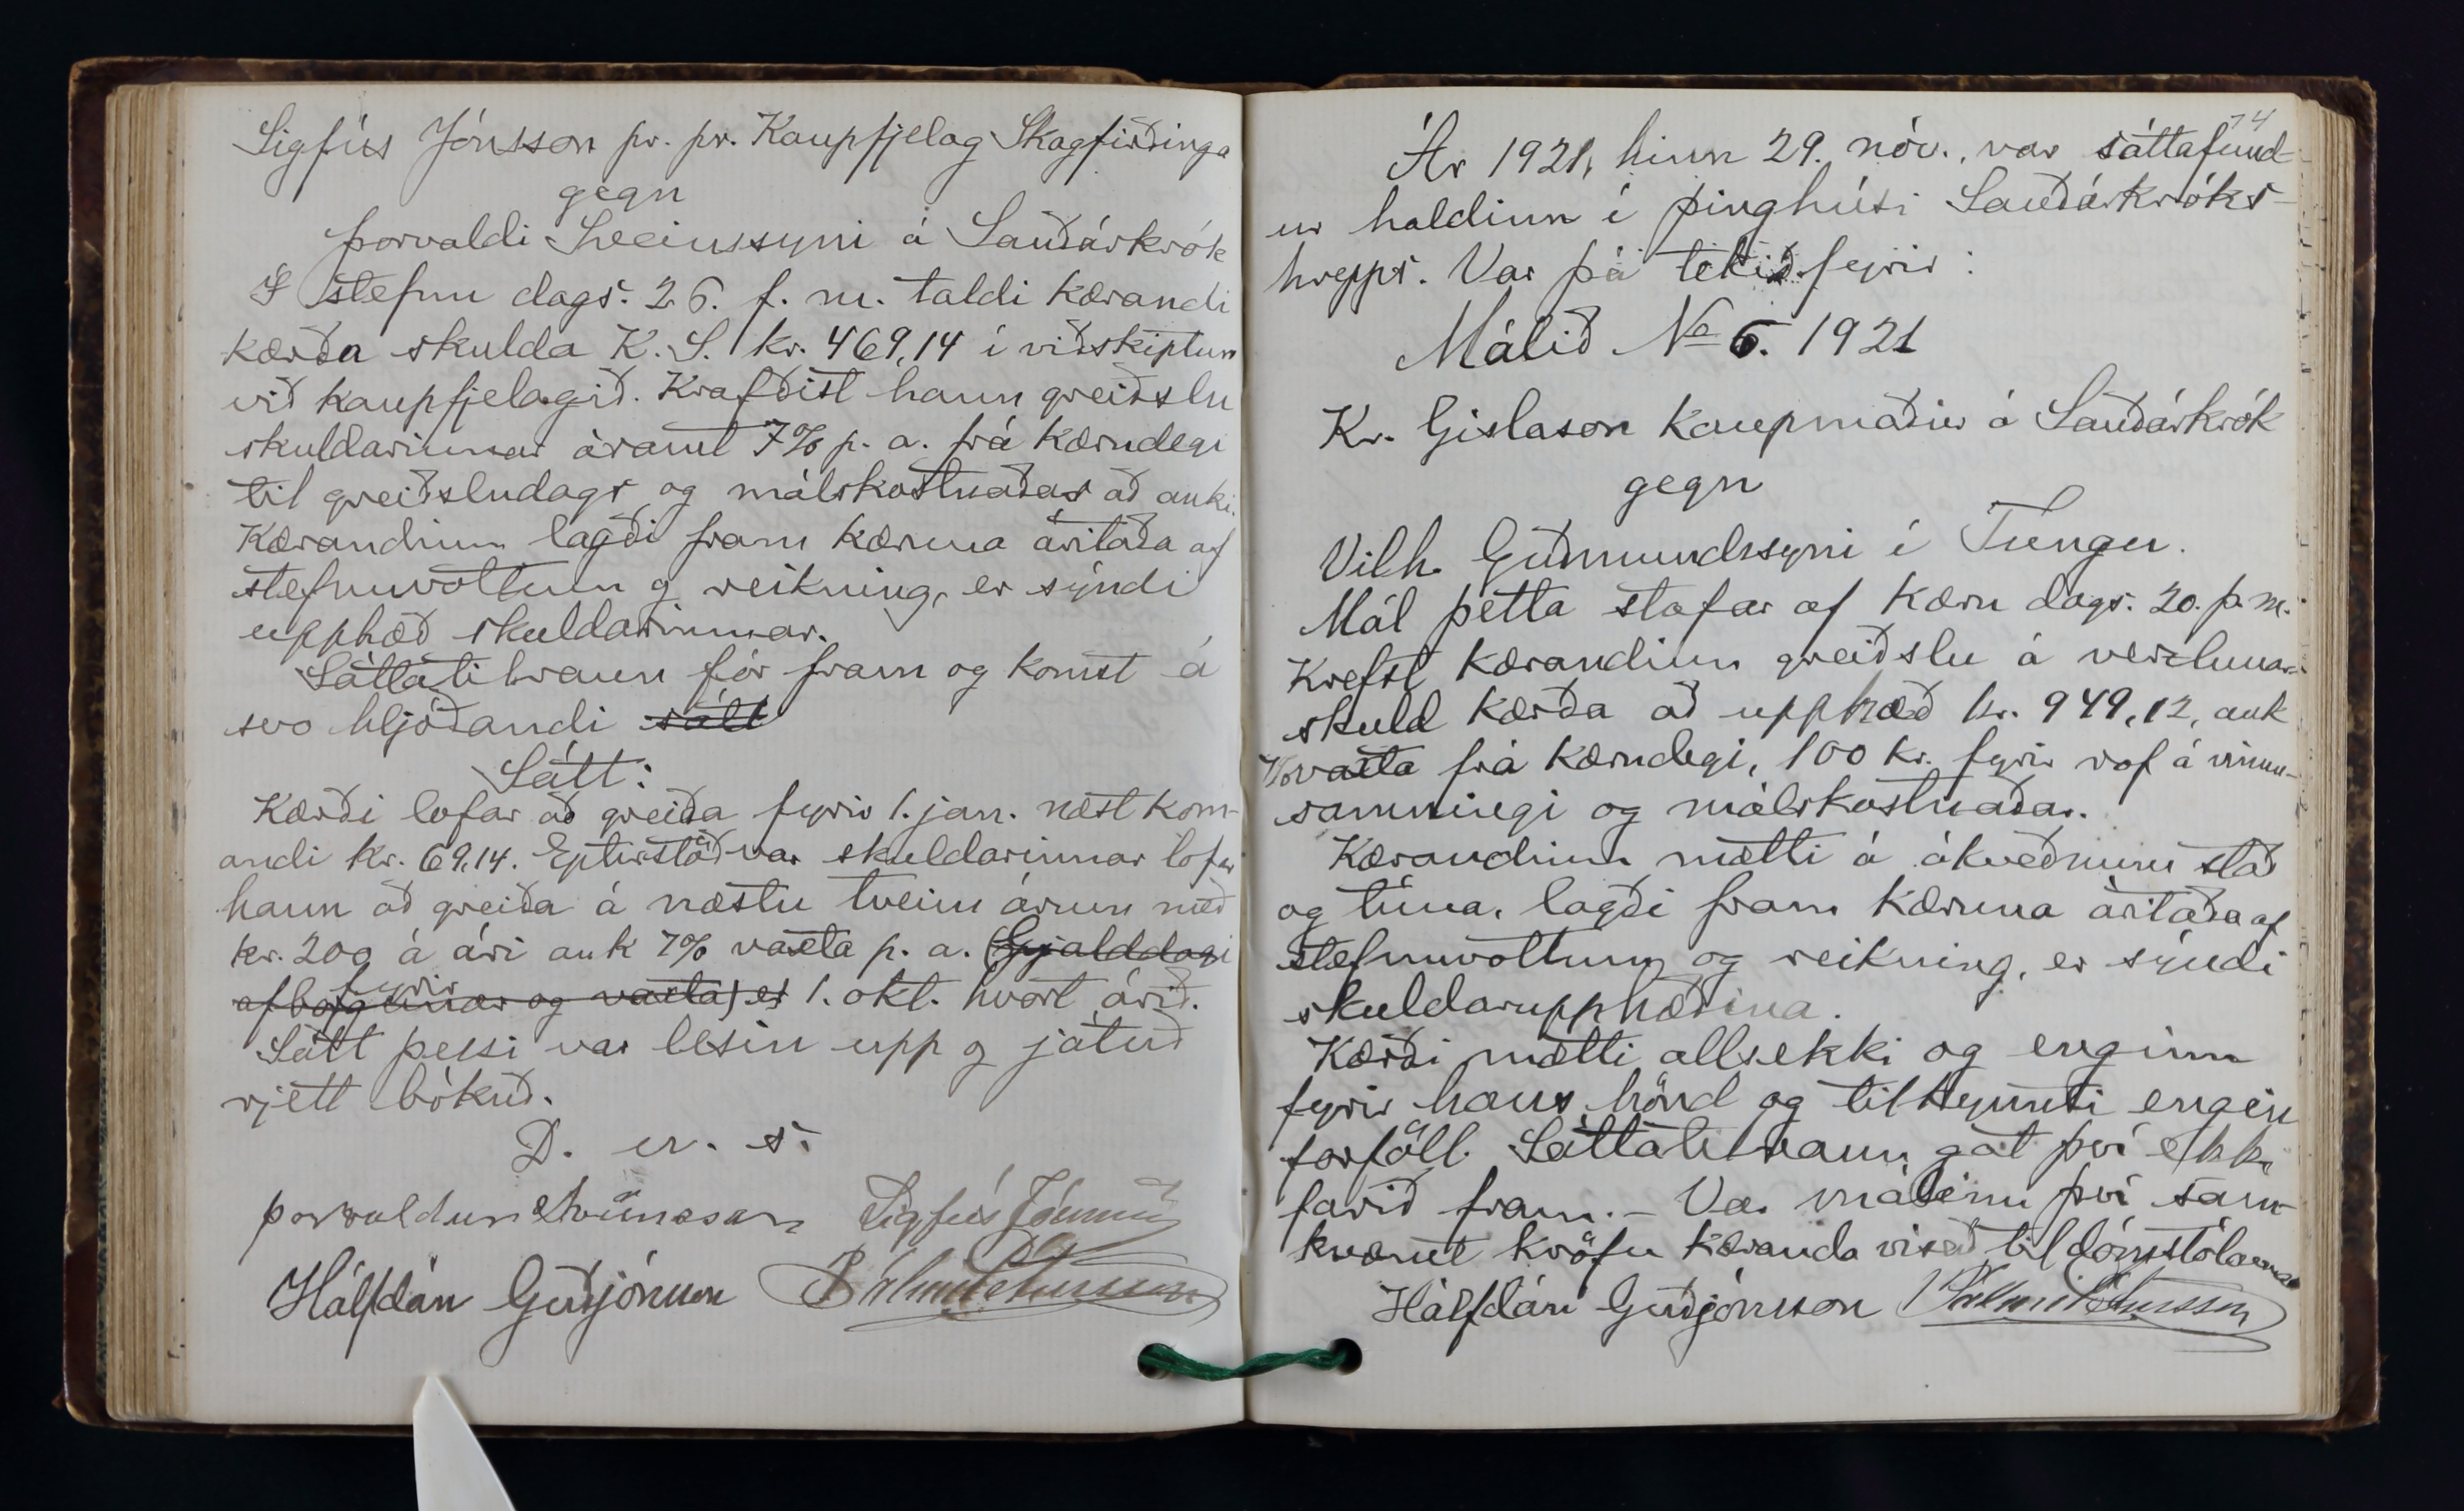 Sigfús Jónsson pr. pr. Kaupfjelag Skagfirðinga
gegn
Þorvaldi Sveinssyni á Sauðárkrók
Í stefnu dags. 26. f. m. taldi kærandi
kærða skulda K. S. kr. 469,14 í viðskiptum
við kaupfjelagið. Krafðist hann greiðslu
skuldarinnar ásamt 7% p. a. frá kærudegi
til greiðsludags og málskostnaðar að auki.
Kærandinn lagði fram kæruna áritaða af
stefnuvottum og reikning, er sýndi
upphæð skuldarinnar.
Sáttatilraun fór fram og komst á
svo hljóðandi sátt
Sátt:
Kærði lofar að greiða fyrir 1. jan. næst kom-
andi kr. 69,14. Eptirstöðvar skuldarinnar lofar
hann að greiða á næstu tveim árum með
kr. 200 á ári auk 7% vaxta p. a. (Gjalddagi
fyrir
afborgunar og vaxta) er 1. okt. hvort árið.
Sátt þessi var lesin upp og játuð
rjett bókuð.
D. u. s.
Þorvaldur Sveinsson Sigfús Jónsson
Hálfdán Guðjónsson Pálmi Pétursson
74
Ár 1921, hinn 29. nóv., var sáttafund-
ur haldinn í þinghúsi Sauðárkróks-
hrepps. Var þá tekið fyrir:
Málið No 6. 1921
Kr. Gíslason kaupmaður á Sauðárkrók
gegn
Vilh. Guðmundssyni í Tungu.
Mál þetta stafar af kæru dags. 20. þ. m.
Krefst kærandinn greiðslu á verzlunar-
skuld kærða að upphæð kr. 949,12, auk
vaxta frá kærudegi, 100 kr. fyrir rof á vinnu-
samningi og málskostnaðar.
Kærandinn mætti á ákveðnum stað
og tíma, lagði fram kæruna áritaða af
stefnuvottum og reikning, er sýndi
skuldarupphæðina.
Kærði mætti alls ekki og enginn
fyrir hans hönd og tilkynnti engin
forföll. Sáttatilraun gat því ekki
farið fram. - Var málinu því sam-
kvæmt kröfu kæranda vísað til dómstólanna
Hálfdán Guðjónsson Pálmi Pétursson